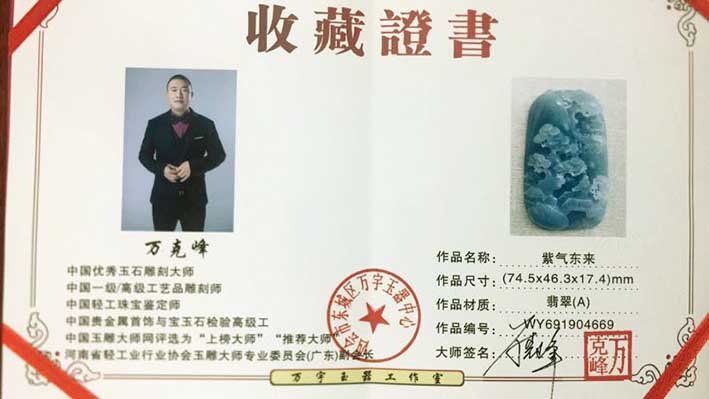 收藏證書
万克峰
中国优秀玉石雕刻大师
中国一级/高级工艺品雕刻师
中国轻工珠宝鉴定师
中国贵金属首饰与宝玉石检验高级工
中国玉雕大师网评选为“上榜大师”“推荐大师”
河南省轻工业行业协会玉雕大师专业委员会(广东)副会长
市东城区万宇玉器中心
作品名称: 紫气东来
作品尺寸: (74.5x46.3x17.4)mm
作品材质: 翡翠(A)
作品编号: WY691904669
大师签名:
万克峰
万宇玉器工作室